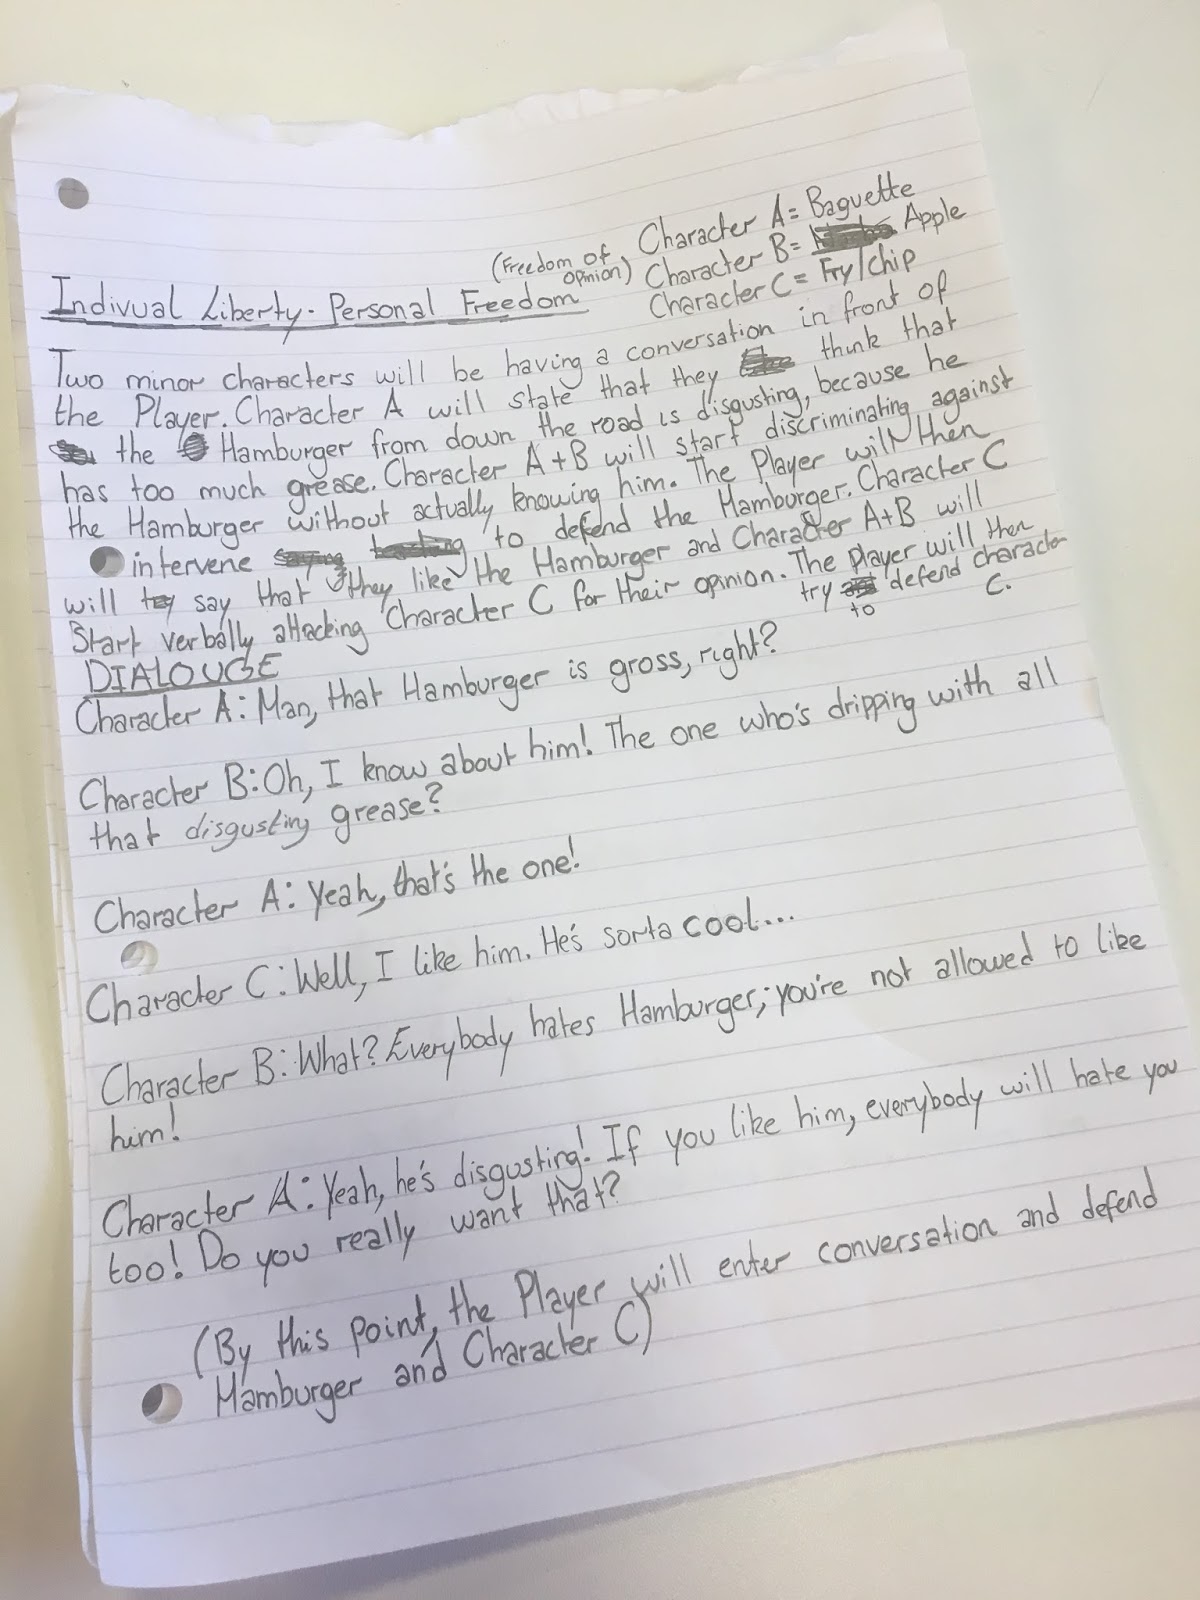 Character A = Baguette
(Freedom of opinion) Character B = Apple
Character C = Fry/chip
Indivual Liberty - Personal Freedom
Two minor characters will be having a conversation in front of
the Player. Character A will state that they think that
the Hamburger from down the road is disgusting, because he
has too much grease. Character A+B will start discriminating against
the Hamburger without actually knowing him. The Player will then
intervene to defend the Hamburger. Character C
will say that they like the Hamburger and Character A+B will
Start verbally attacking Character C for their opinion. The player will then
try to defend character
C.
DIALOUGE
Character A: Man, that Hamburger is gross, right?
Character B: Oh, I know about him! The one who's dripping with all
that disgusting grease?
Character A: Yeah, that's the one!
Character C: Well, I like him. He's sorta cool...
Character B: What? Everybody hates Hamburger; you're not allowed to like
him!
Character A: Yeah, he's disgusting! If you like him, everybody will hate you
too! Do you really want that?
(By this point, the Player will enter conversation and defend
Hamburger and Character C)